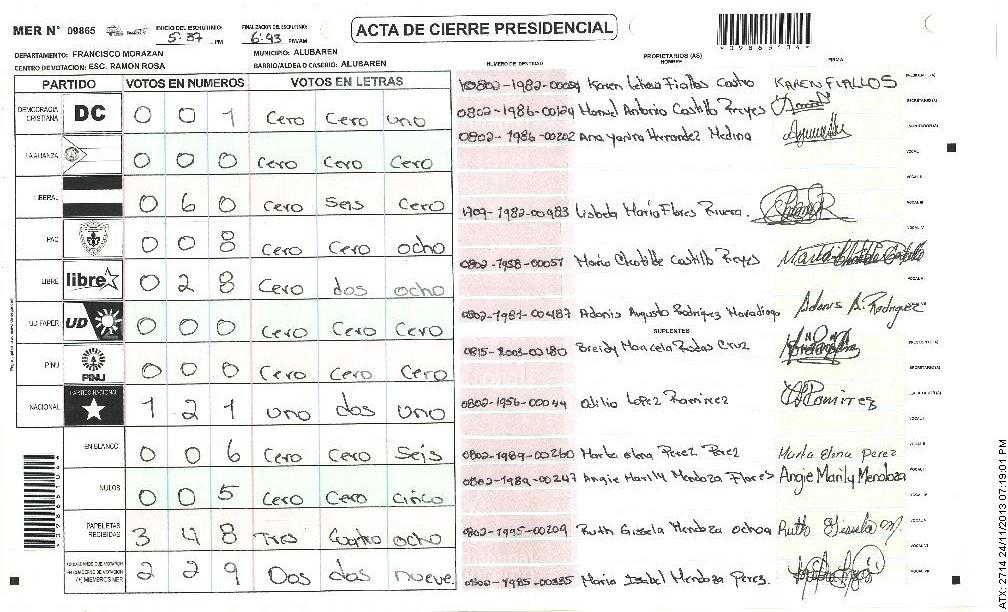 MER Nº 09865 INICIO DEL ESCRUTINIO: 5:37 PM FINALIZACION DEL ESCRUTINIO: 6:43 PM/AM
ACTA DE CIERRE PRESIDENCIAL
DEPARTAMENTO: FRANCISCO MORAZAN MUNICIPIO: ALUBAREN
CENTRO DE VOTACION: ESC. RAMON ROSA BARRIO/ALDEA O CASERIO: ALUBAREN
NUMERO DE IDENTIDAD PROPIETARIOS (AS) NOMBRE FIRMA
PARTIDO VOTOS EN NUMEROS VOTOS EN LETRAS
DEMOCRACIA CRISTIANA DC 0 0 1 Cero Cero uno
LA ALIANZA 0 0 0 Cero Cero Cero
LIBERAL 0 6 0 Cero Seis Cero
PAC 0 0 8 Cero Cero ocho
LIBRE libre 0 2 8 Cero dos ocho
UD-FAPER UD 0 0 0 Cero Cero Cero
PINU PINU 0 0 0 Cero Cero Cero
NACIONAL PARTIDO NACIONAL 1 2 1 uno dos uno
EN BLANCO 0 0 6 Cero Cero Seis
NULOS 0 0 5 Cero Cero cinco
PAPELETAS RECIBIDAS 3 4 8 Tres Cuatro ocho
CIUDADANOS QUE VOTARON EN CUADERNO DE VOTACION (+) MIEMBROS MER 2 2 9 Dos dos nueve
Karen Fiallos Castro KAREN FIALLOS
0802-1986-00129 Manuel Antonio Castillo Reyes
0802-1986-00202 Ana Yanira Hernandez Medina
1709-1982-00983 Lisbeda María Flores Rivera.
0802-1958-00057 María Clotilde Castillo Reyes María Clotilde Castillo
0802-1981-00487 Adonis Augusto Rodríguez Maradiaga Adonis A. Rodriguez
SUPLENTES
0815-2003-00180 Breidy Marcela Rodas Cruz
0802-1956-00044 Odilio Lopez Ramirez Ramirez
0802-1989-00260 Marta elena Perez Perez Marta Elena Perez
0802-1989-00247 Angie Marily Mendoza Flores Angie Marily Mendoza
0802-1995-00209 Ruth Gissela Mendoza ochoa Ruth Gissela M.
0802-1985-00385 Maria Isabel Mendoza Perez.
ATX: 2714 24/11/2013 07:19:01 PM